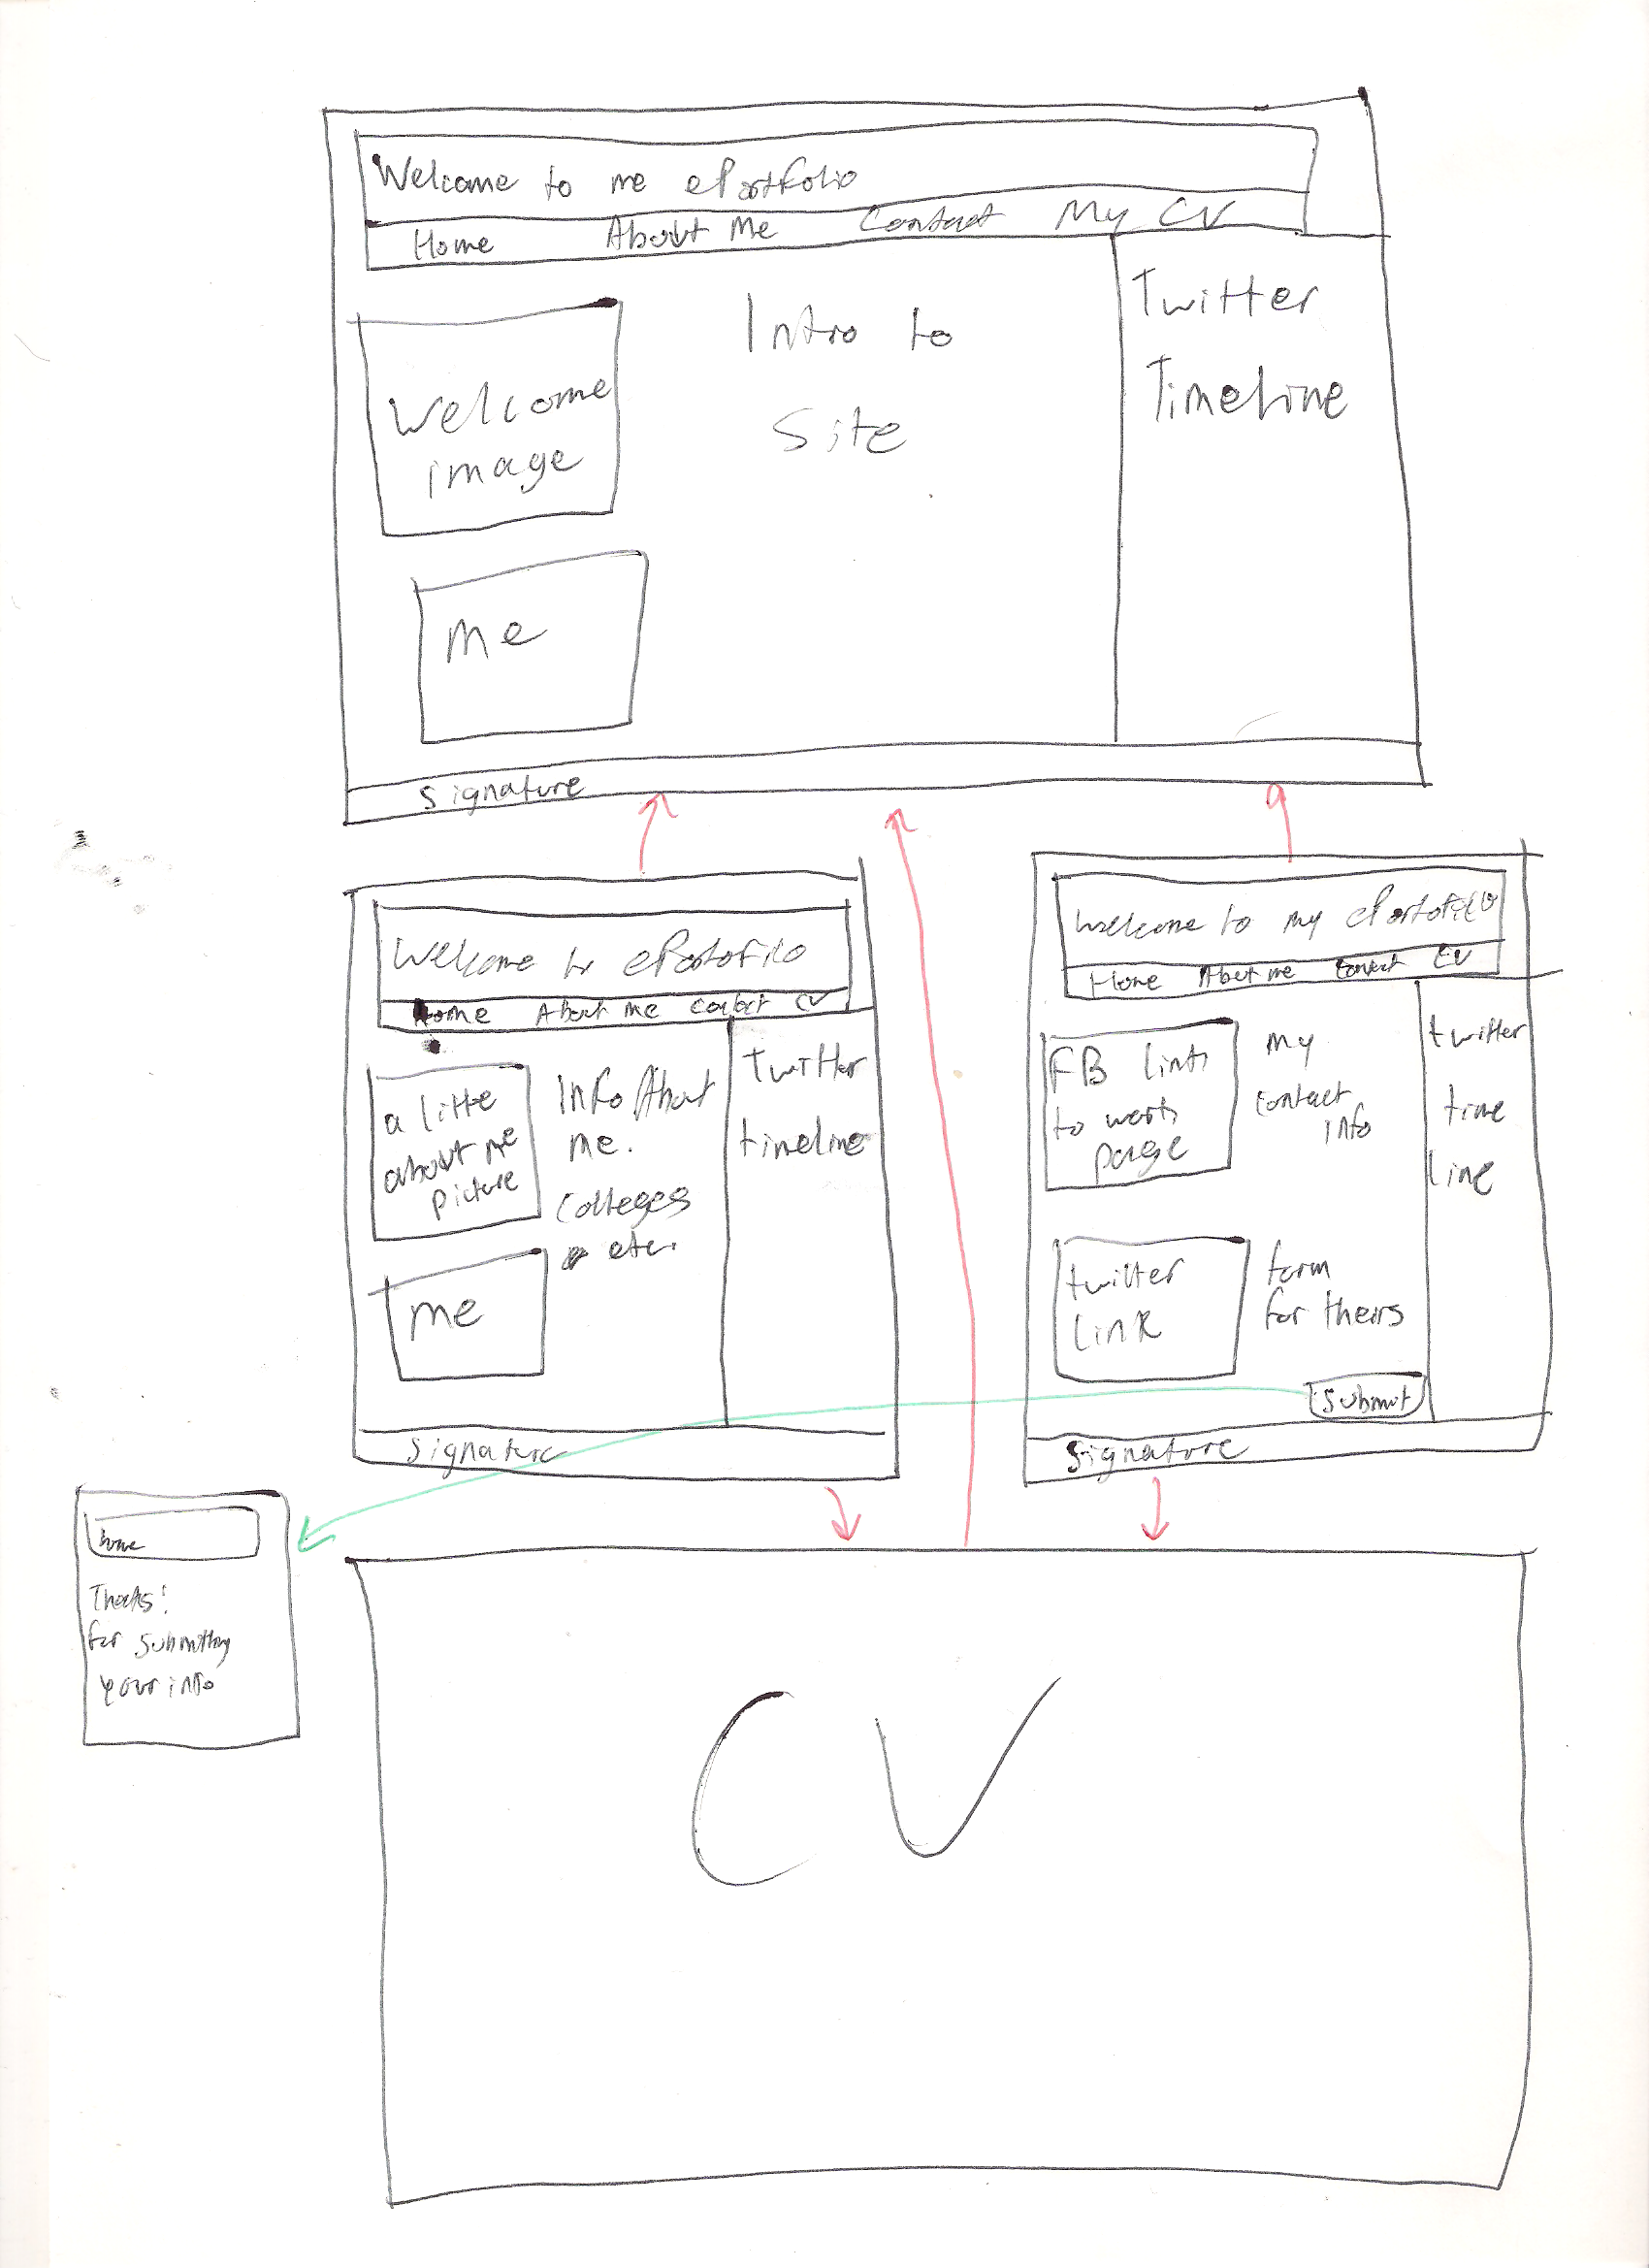 Welcome to me ePortfolio
Home About Me Contact My CV
Welcome
image
Intro to
Site
Twitter
Timeline
me
Signature
Welcome to ePortofilo
Home About me Contact CV
a little
about me
picture
Info About
me.
Colleges
etc.
Twitter
timeline
me
Signature
Welcome to my ePortofilo
Home About me Contact CV
FB link
to work
page
My
contact
info
twitter
time
line
twitter
link
form
for theirs
Submit
Signature
home
Thanks!
for submitting
your info
CV